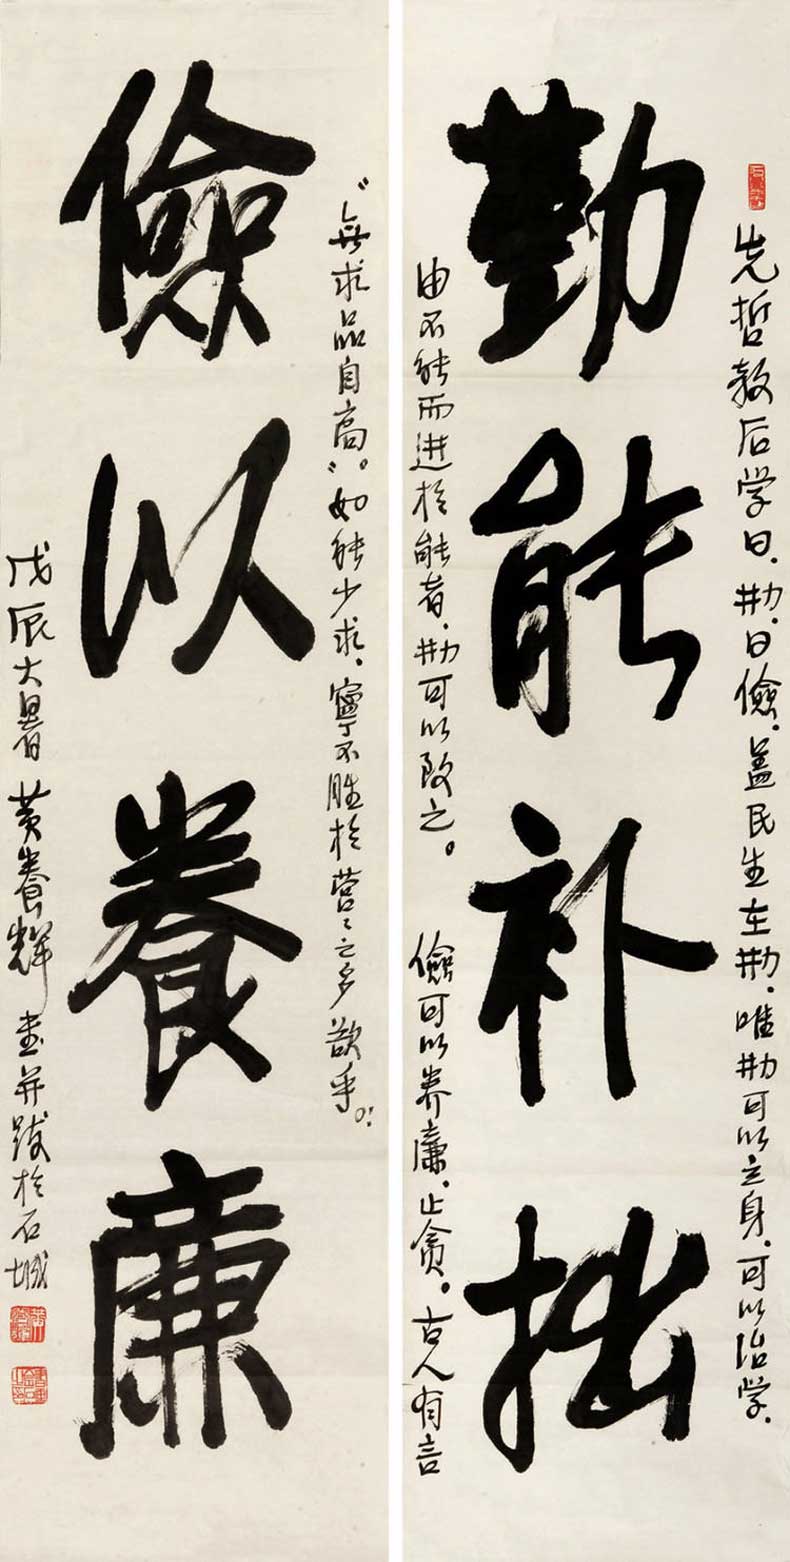 勤能补拙
先哲教后学曰、勤、曰儉、盖民生在勤、唯勤可以立身、可以治学、
由不能而进於能者、勤可以致之。儉可以养廉、止贪。古人有言
儉以養廉
“無求品自高”。如能少求、寧不胜於营々之多欲乎。
戊辰大暑 黄養辉 書并跋於石城